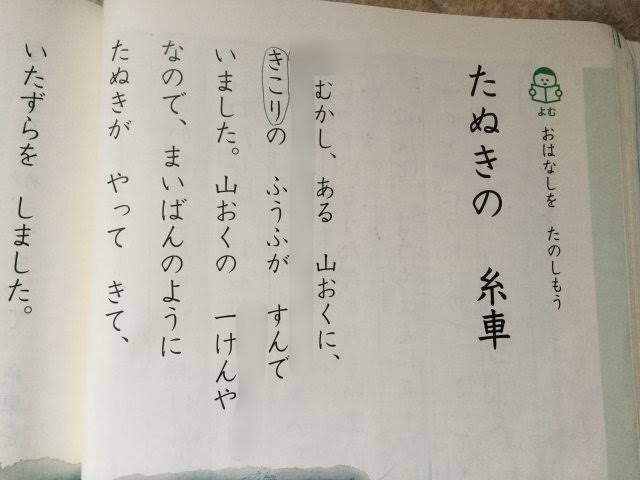 よむ
おはなしを たのしもう
たぬきの 糸車
むかし、ある 山おくに、
きこりの ふうふが すんで
いました。山おくの 一けんや
なので、まいばんのように
たぬきが やって きて、
いたずらを しました。